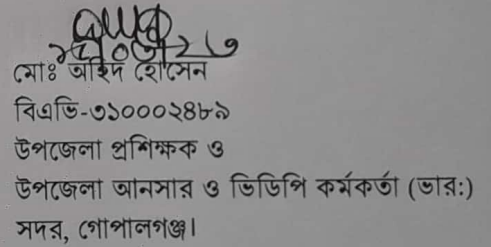 মোঃ অহিদ হোসেন
বিএভি-৩১০০০২৪৮৯
উপজেলা প্রশিক্ষক ও
উপজেলা আনসার ও ভিডিপি কর্মকর্তা (ভার:)
সদর, গোপালগঞ্জ।